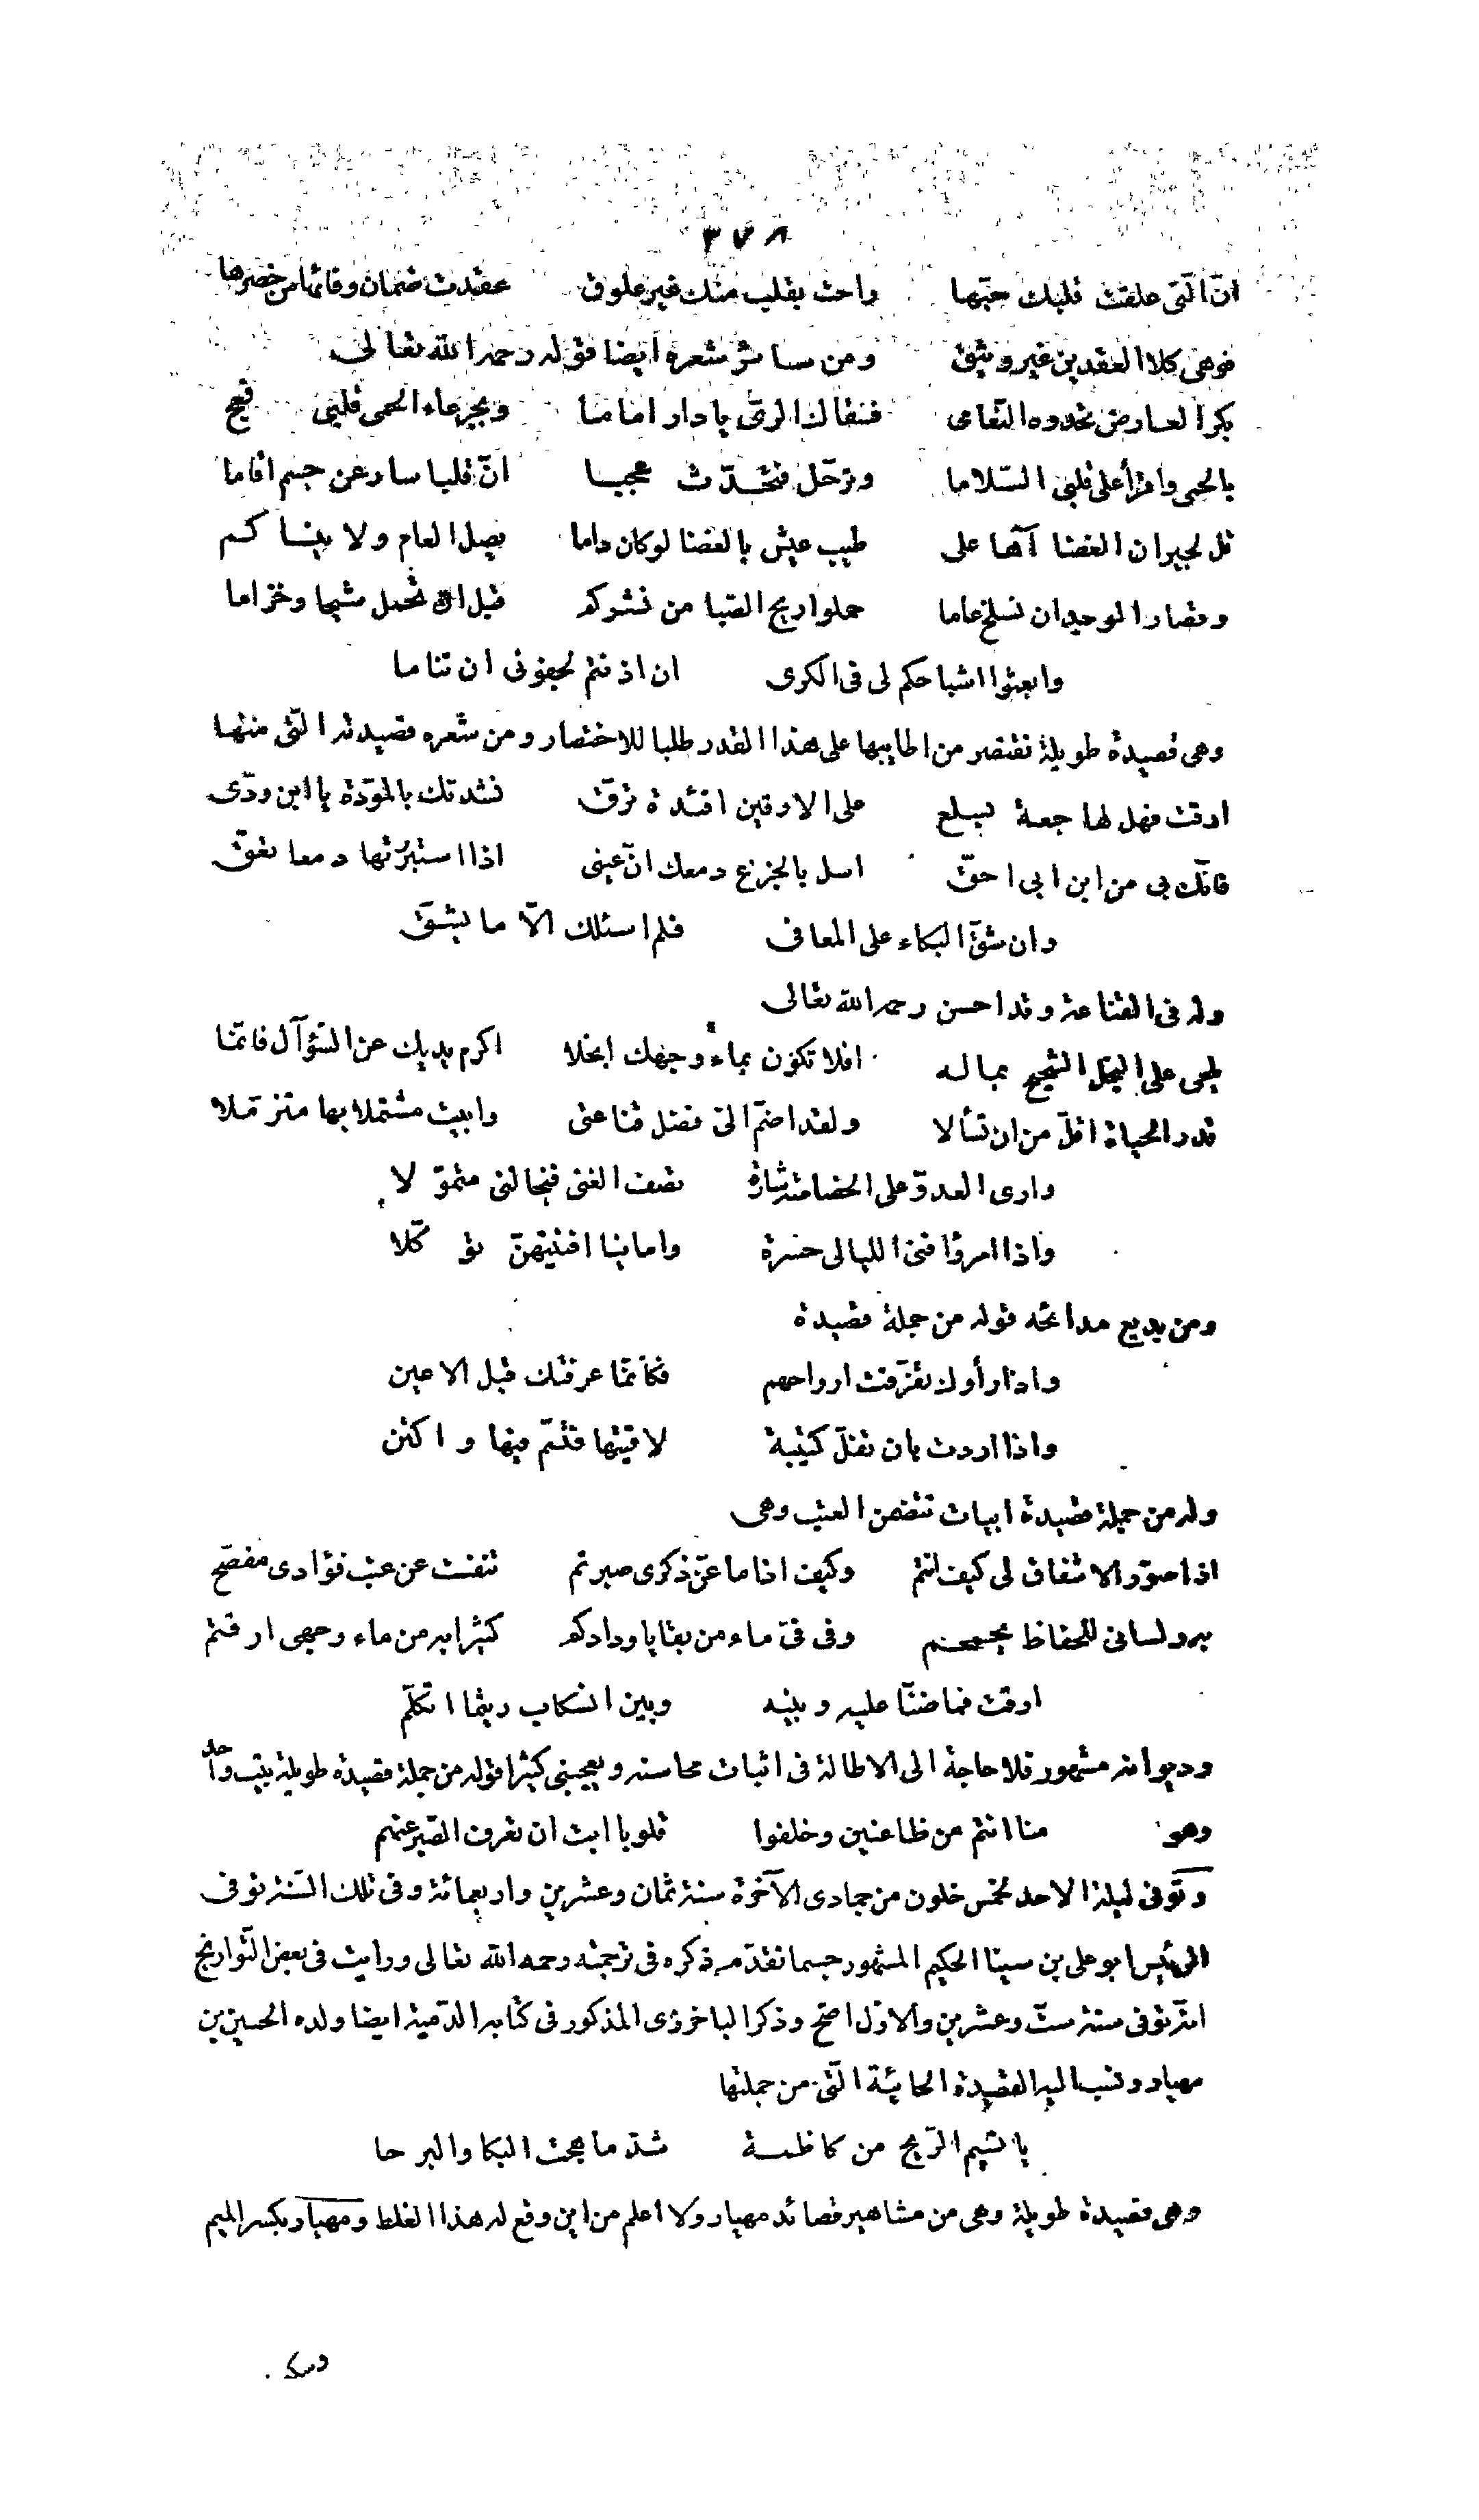 ٣٧٨
انّ الّتى علقت قلبك حبّها واحت بقلب منك غير علوق عقدت ضمان وفائها من خصرها
فوهى كلا العقدين غير وثيق ومن سائر شعره ايضا قوله رحمه الله تعالى
بكر العارض تحدوه النّعامى فسقاك الرىّ يا دار اماما وبجرعاء الحمى قلبى فعج
بالحمى واقرأ على قلبى السّلاما وترحّل فتحدّث عجيبا انّ قلبا سار عن جسم اقاما
قل لجيران الغضا آها على طيب عيش بالغضا لو كان داما يصل العام ولا ينساكم
وقصار الوجد ان نسلخ عاما حملوا ريح الصّبا من نشركم قبل ان تحمل شيحا وخزاما
وابعثوا اشباحكم لى فى الكرى ان اذنتم لجفونى ان تناما
وهى قصيدة طويلة نقتصر من اطايبها على هذا القدر طلبا للاختصار ومن شعره قصيدته الّتى منها
ارقت فهل لهاجعة بسلع على الارقين افئدة ترقّ نشدتك بالمودّة يا ابن ودّى
فانّك بى من ابن ابى احقّ اسل بالجزع دمعك انّ عينى اذا استبررتها دمعا تعقّ
وان شقّ البكاء على المعافى فلم اسئلك الّا ما يشقّ
وله فى القناعة وقد احسن رحمه الله تعالى
يلحى على البخل الشّحيح بماله افلا تكون بماء وجهك ابخلا اكرم يديك عن السّؤآل فانّما
قدر الحياة اقلّ من ان تسألا ولقد اضمّ الىّ فضل قناعتى وابيت مشتملا بها متزمّلا
وارى العدوّ على الخصاصة شارة تصف الغنى فيخالنى متموّلا
واذا امرؤا فنى الليالى حسرة وامانيا افنيتهنّ توكّلا
ومن بديع مدائحه قوله من جملة قصيدة
واذا رأوك تفرّقت ارواحهم فكأنّما عرفتك قبل الاعين
واذا اردت بان تفلّ كتيبة لاقيتها فتسمّ فيها واكتن
وله من جملة قصيدة ابيات تتضمن العتب وهى
اذا صوّر الاشفاق لى كيف انتم وكيف اذا ما عنّ ذكرى صبرتم تنفّست عن عتب فؤادى مفصّح
به ولسانى للحفاظ يجمجم وفى فىّ ماء من بقايا ودادكم كثيرا به من ماء وجهى ارقتم
ارقت فما ضنّا عليه وبينه وبين انسكاب ريثما اتكلّم
وديوانه مشهور فلا حاجة الى الاطالة فى اثبات محاسنه ويعجبنى كثيرا قوله من جملة قصيدة طويلة بيت واحد
وهو منا انتم من ظاعنين وخلفوا قلوبا ابت ان تعرف الصّبر عنهم
وتوفى ليلة الاحد لخمس خلون من جمادى الآخرة سنة ثمان وعشرين واربعمائة وفى تلك السّنة توفى
الرئيس ابو على بن سينا الحكيم المشهور حسبما تقدّم ذكره فى ترجمته رحمه الله تعالى ورايت فى بعض التّواريخ
انّه توفى سنة ستّ وعشرين والاوّل اصحّ وذكر الباخرزى المذكور فى كتابه الدّمية ايضا ولده الحسين بن
مهيار ونسب اليه القصيدة الحائيّة الّتى من جملتها
يا نسيم الرّيح من كاظمة شدّ ما هجت البكا والبرحا
وهى قصيدة طويلة وهى من مشاهير قصائد مهيار ولا اعلم من اين وقع له هذا الغلط ومهيار بكسر الميم